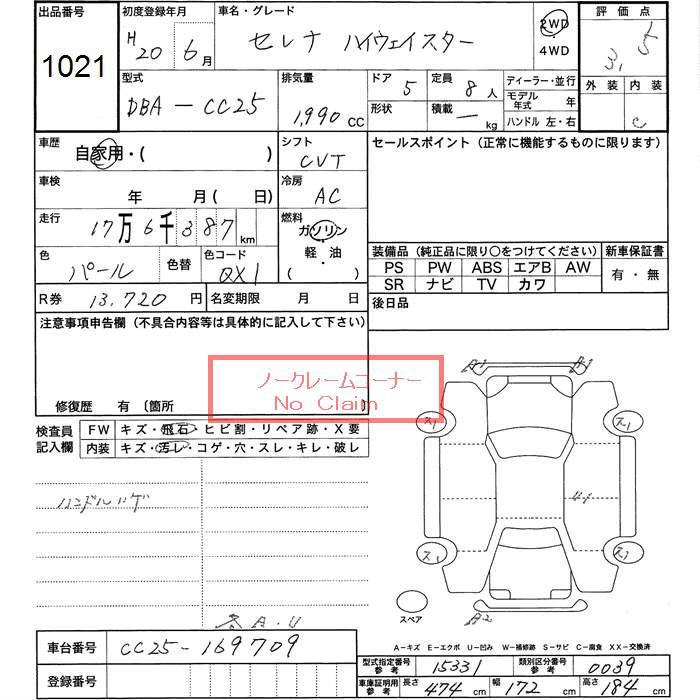 出品番号 初度登録年月 車名・グレード 2WD 評価点
1021 H20年6月 セレナ ハイウェイスター ・4WD 3.5
型式 排気量 ドア 5 定員 8人 ディーラー・並行 外装 内装
DBA-CC25 1,990cc 形状 積載 ー kg モデル年式 年 C
ハンドル 左・右
車歴 自家用・( ) シフト CVT セールスポイント(正常に機能するものに限ります)
車検 年 月( 日) 冷房 AC
走行 17万6千387km 燃料 ガソリン・軽・油 ( )
色 パール 色替 色コード QX1 装備品(純正品に限り〇をつけてください) 新車保証書
PS PW ABS エアB AW 有・無
SR ナビ TV カワ
R券 13,720円 名変期限 月 日 後日品
注意事項申告欄(不具合内容等は具体的に記入して下さい)
ノークレームコーナー
No Claim
修復歴 有〔箇所 〕
検査員記入欄 FW キズ・飛石・ヒビ割・リペア跡・X要
内装 キズ・汚レ・コゲ・穴・スレ・キレ・破レ
ハンドルハゲ
A・U
A-1 A-1
ス1 ス1
U-1
ス1
スペア A-2
A-キズ E-エクボ U-凹み W-補修跡 S-サビ C-腐食 XX-交換済
車台番号 CC25-169709
登録番号
型式指定番号参考 15331 類別区分番号参考 0039
車庫証明用参考 長さ 474cm 幅 172cm 高さ 184cm